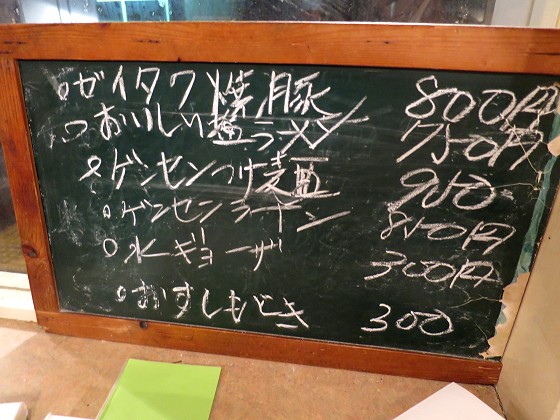 ゼイタク焼豚 800円
おいしい塩ラーメン 750円
ゲンセンつけ麺 950
ゲンセンラーメン 850円
水ギョーザ 300円
おすしもどき 300